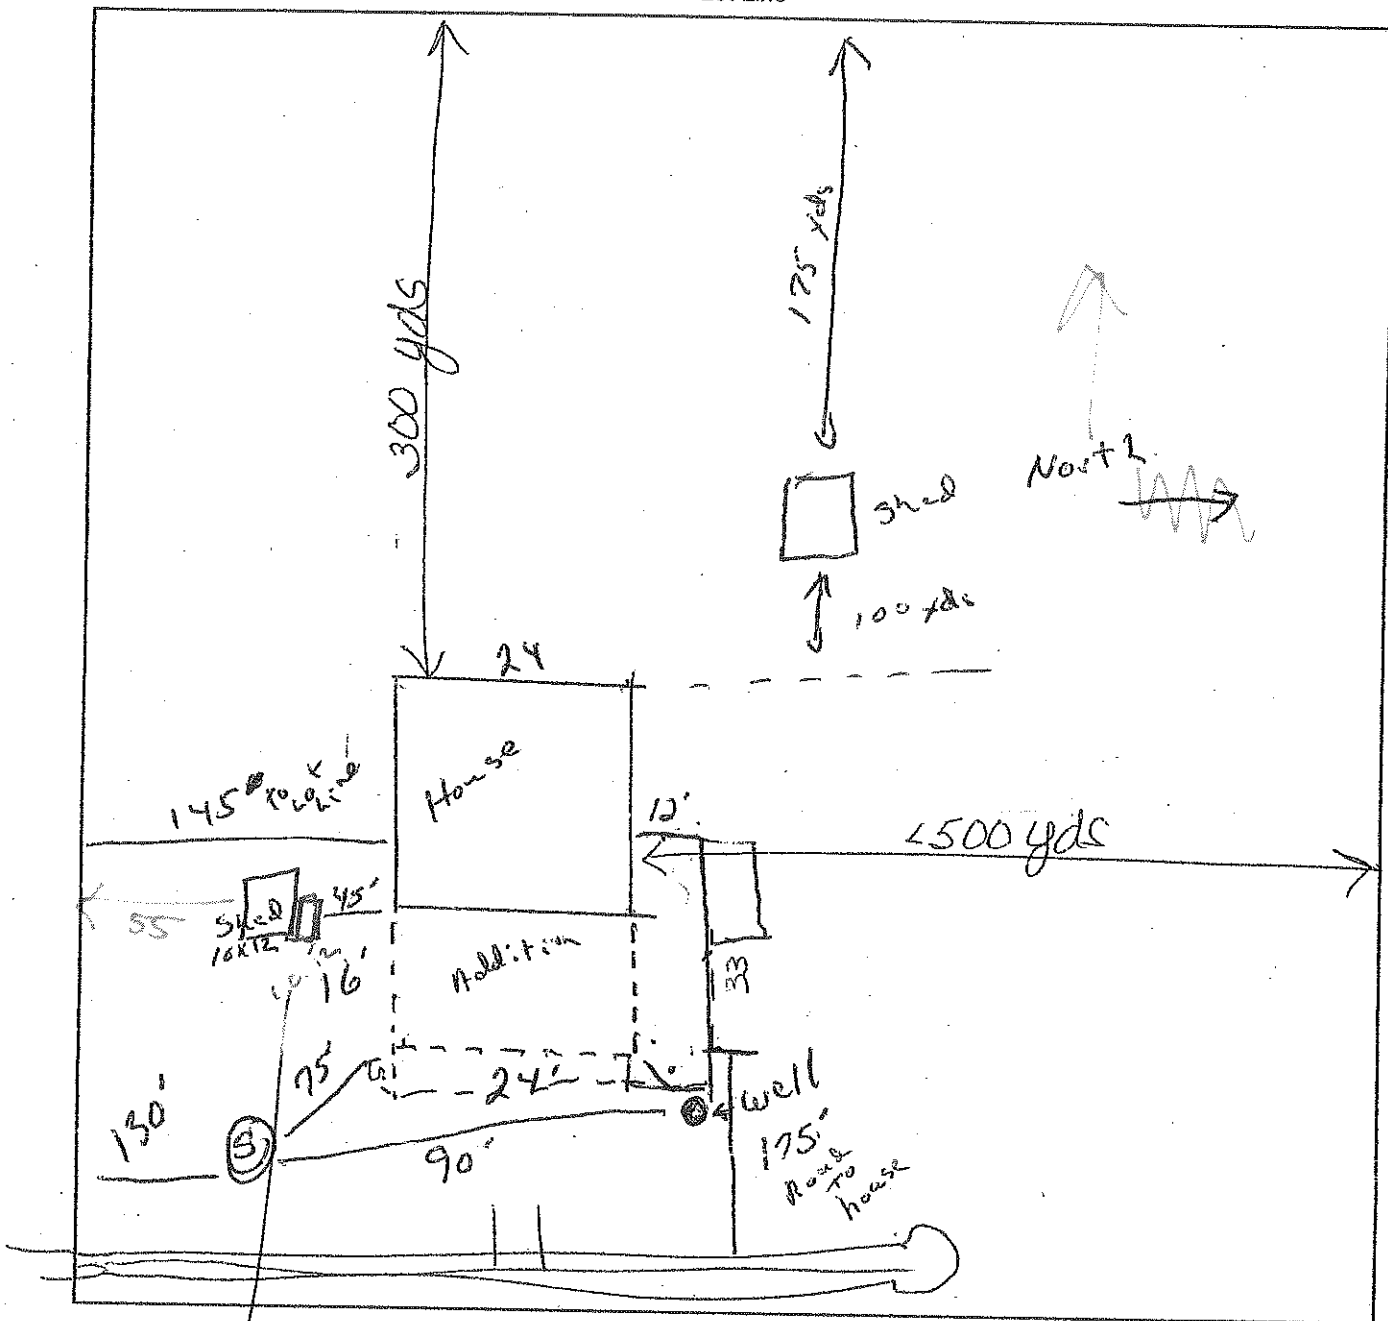 300 yds
175 yds
North
shed
100 yds
24
House
145' to Lot Line
12'
<500 yds
55
Shed
10x12
45'
16'
Addition
33
75'
24'
130'
S
90'
well
175'
Road
To
house